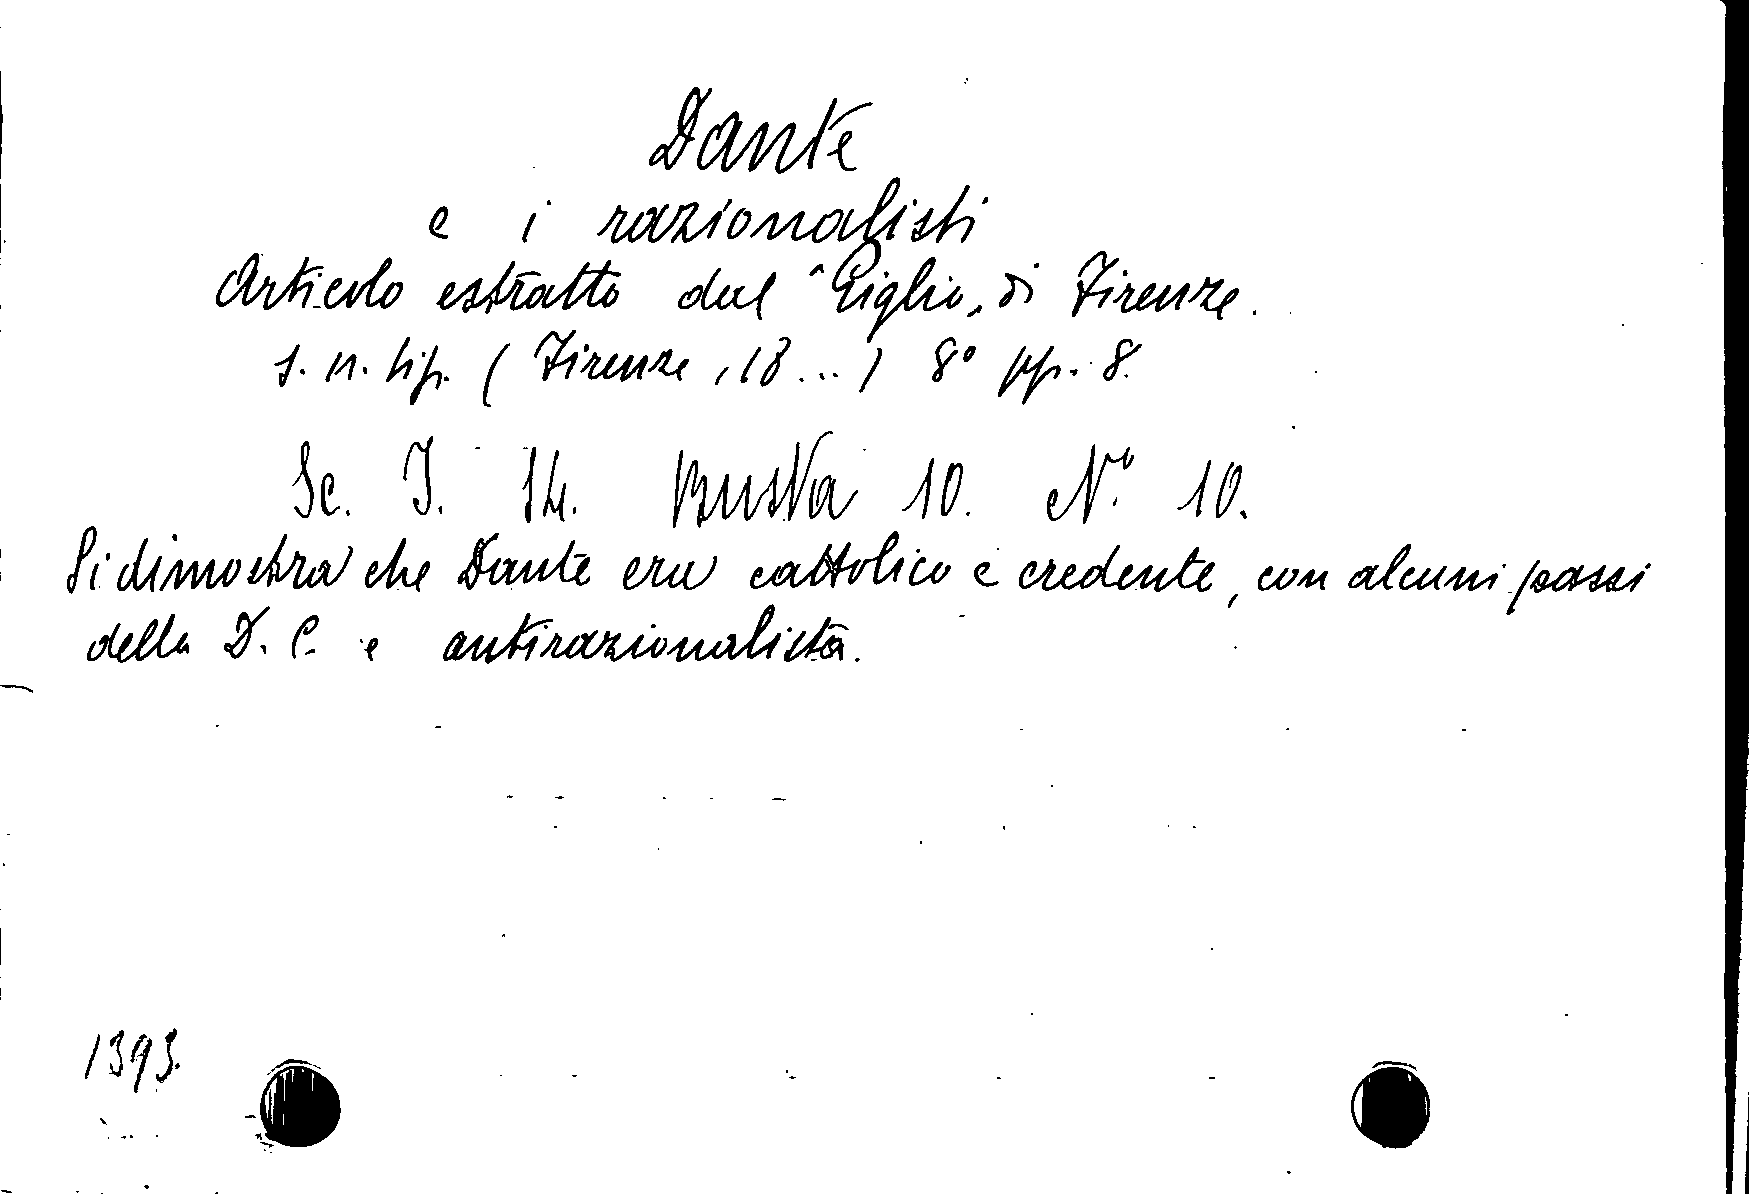 Dante
e i razionalisti
Articolo estratto dal "Giglio" di Firenze.
s. n. tip. (Firenze, 18...) 8° pp. 8.
Sc. I. 14. Busta 10. N.° 10.
Si dimostra che Dante era cattolico e credente, con alcuni passi
della D. C. e antirazionalista.
1393.